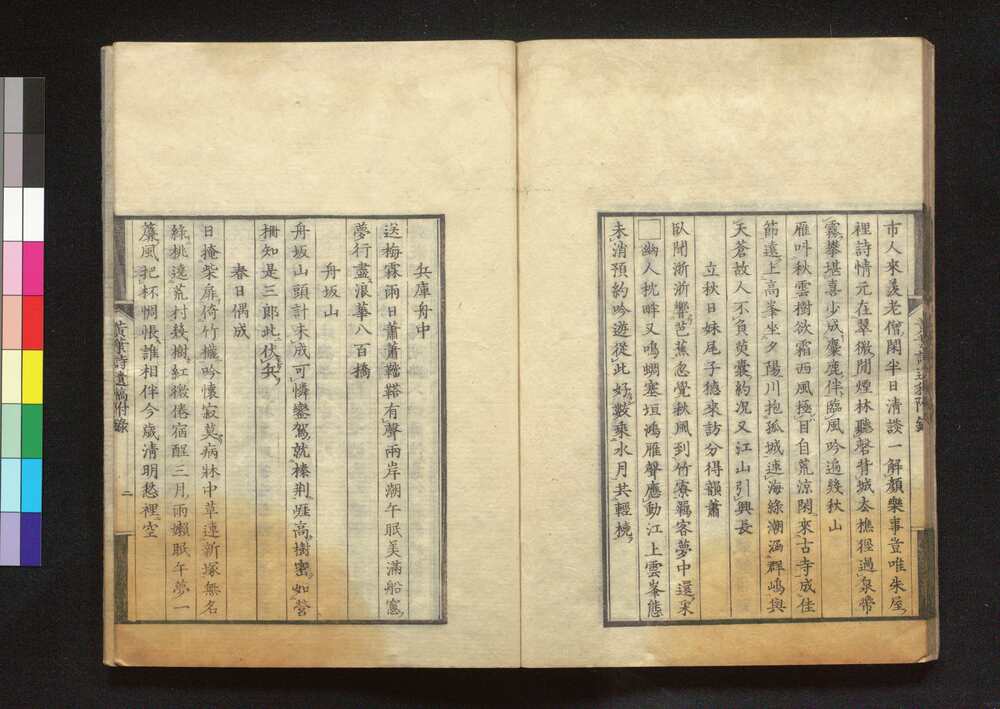 市人來羨老僧閑半日清談一解顏樂事豈唯朱屋
裡詩情元在翠微間煙林聽磬背城去樵徑過泉帶
靄攀堪喜少成麋鹿伴臨風吟遍幾秋山
雁叫秋雲樹欲霜西風極目自荒涼閑來古寺成佳
節遠上高峯坐夕陽川抱孤城連海綠潮涵群嶋與
天蒼故人不負萸囊約况又江山引興長
立秋日妹尾子德來訪分得韻蕭
臥聞淅淅響芭蕉忽覺秋風到竹寮羈客夢中還采
□幽人枕畔又鳴蜩塞垣鴻雁聲應動江上雲峯態
未消預約吟遊從此好數乘水月共輕橈
兵庫舟中
送梅霖雨日蕭蕭鞺鞳有聲兩岸潮午眠美滿船窻
夢行盡浪華八百橋
舟坂山
舟坂山頭計未成可憐鑾駕就榛荆崕高樹密如營
柵知是三郎此伏兵
春日偶成
日掩柴扉倚竹櫳吟懷寂莫病牀中草連新塚無名
綠桃遶荒村幾樹紅微倦宿醒三月雨嬾眠午夢一
簾風把杯惆悵誰相伴今歲清明愁裡空
黃葉詩遺稿附錄
二